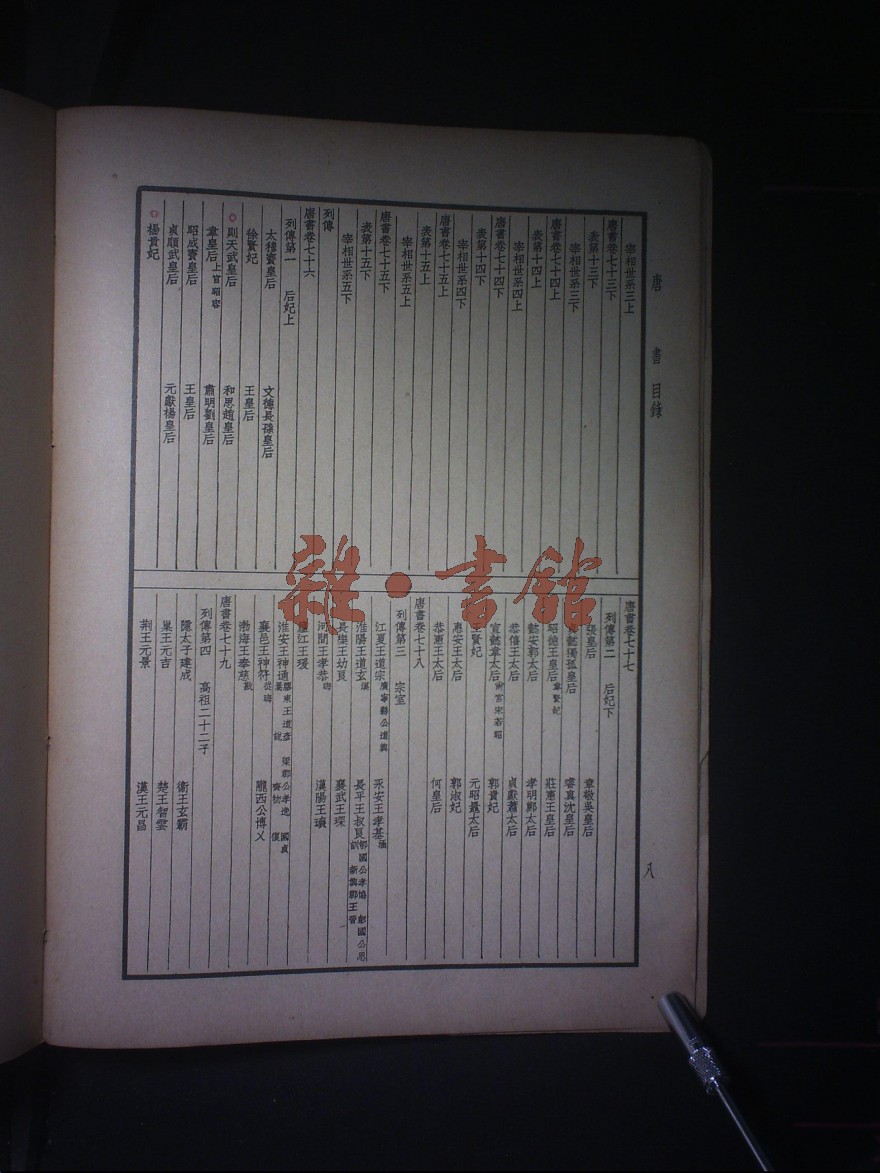 唐書目錄
八
宰相世系三上
唐書卷七十三下
表第十三下
宰相世系三下
唐書卷七十四上
表第十四上
宰相世系四上
唐書卷七十四下
表第十四下
宰相世系四下
唐書卷七十五上
表第十五上
宰相世系五上
唐書卷七十五下
表第十五下
宰相世系五下
列傳
唐書卷七十六
列傳第一 后妃上
太穆竇皇后 文德長孫皇后
徐賢妃 王皇后
則天武皇后 和思趙皇后
韋皇后 上官昭容 肅明劉皇后
昭成竇皇后 王皇后
貞順武皇后 元獻楊皇后
楊貴妃
唐書卷七十七
列傳第二 后妃下
張皇后 章敬吳皇后
懿獨孤皇后 睿真沈皇后
昭德王皇后 韋賢妃 莊憲王皇后
懿安郭太后 孝明鄭太后
恭僖王太后 貞獻蕭太后
宣懿韋太后 尚宮宋若昭 郭貴妃
賢妃 元昭鼂太后
惠安王太后 郭淑妃
恭憲王太后 何皇后
唐書卷七十八
列傳第三 宗室
江夏王道宗 廣寧縣公道興 永安王孝基 涵
淮陽王道玄 漢 長平王叔良 郇國公孝協 彭國公思訓 新興郡王晉
長樂王幼良 襄武王琛
河間王孝恭 晦 漢陽王瓌
廬江王瑗
淮安王神通 膠東王道彥 梁郡公孝逸 國貞 暠 說 齊物 復
襄邑王神符 從晦 隴西公博乂
渤海王奉慈 戩
唐書卷七十九
列傳第四 高祖二十二子
隱太子建成 衞王玄霸
巢王元吉 楚王智雲
荆王元景 漢王元昌
雜·書館